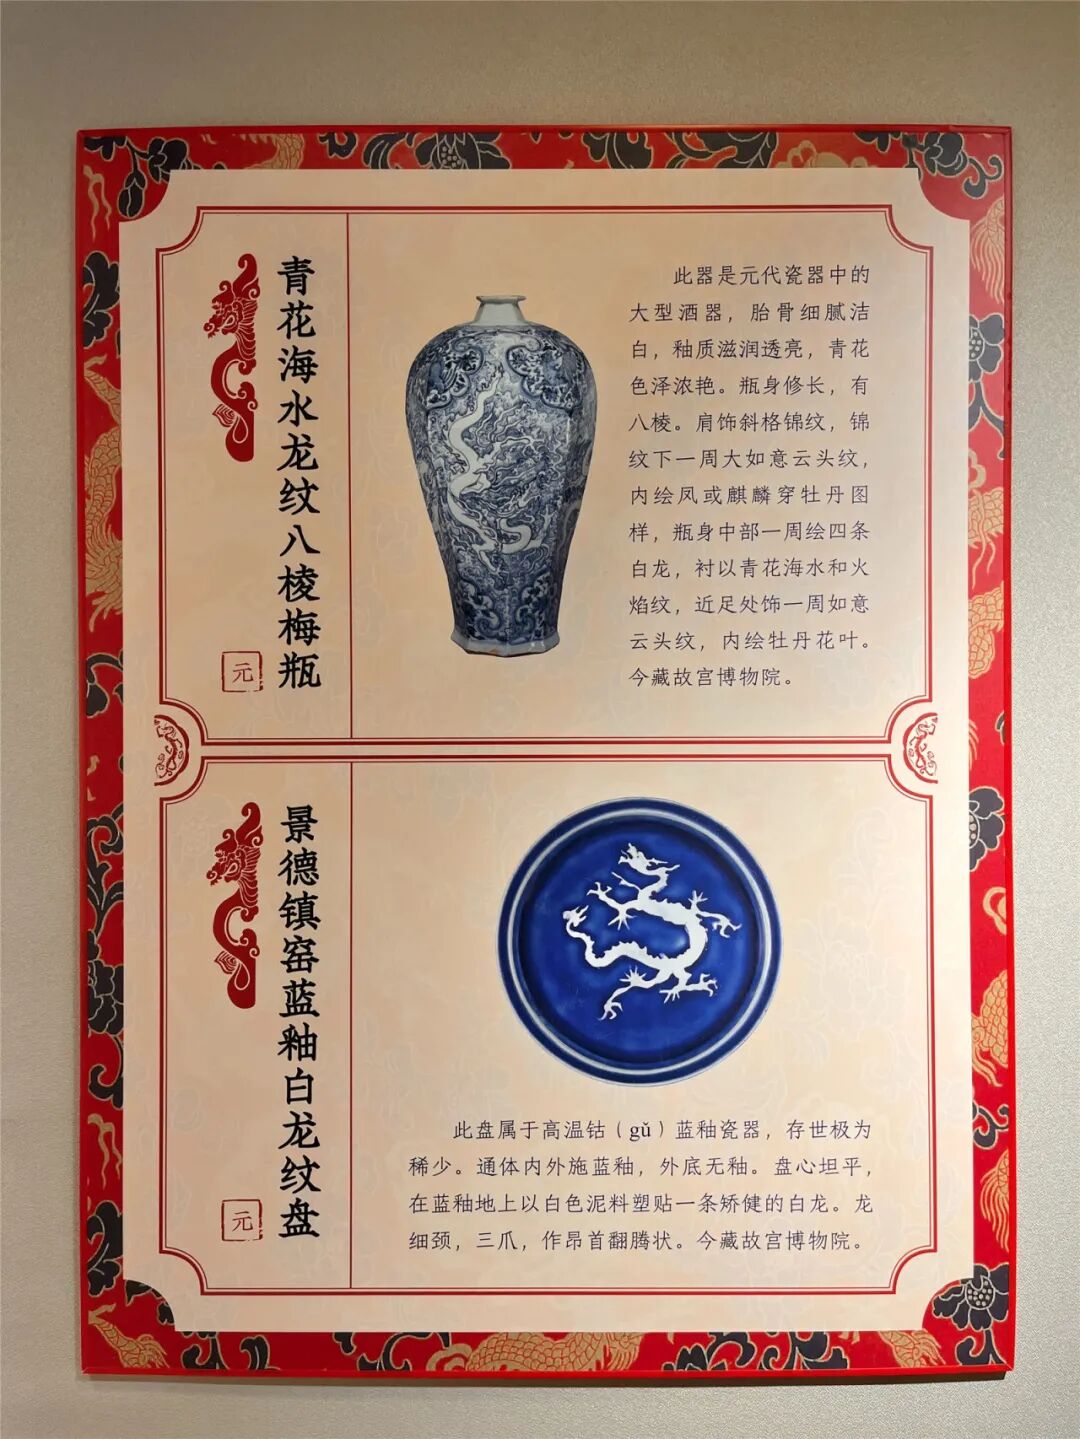 青花海水龙纹八棱梅瓶
元
此器是元代瓷器中的
大型酒器，胎骨细腻洁
白，釉质滋润透亮，青花
色泽浓艳。瓶身修长，有
八棱。肩饰斜格锦纹，锦
纹下一周大如意云头纹，
内绘凤或麒麟穿牡丹图
样，瓶身中部一周绘四条
白龙，衬以青花海水和火
焰纹，近足处饰一周如意
云头纹，内绘牡丹花叶。
今藏故宫博物院。
景德镇窑蓝釉白龙纹盘
元
此盘属于高温钴（gǔ）蓝釉瓷器，存世极为
稀少。通体内外施蓝釉，外底无釉。盘心坦平，
在蓝釉地上以白色泥料塑贴一条矫健的白龙。龙
细颈，三爪，作昂首翻腾状。今藏故宫博物院。